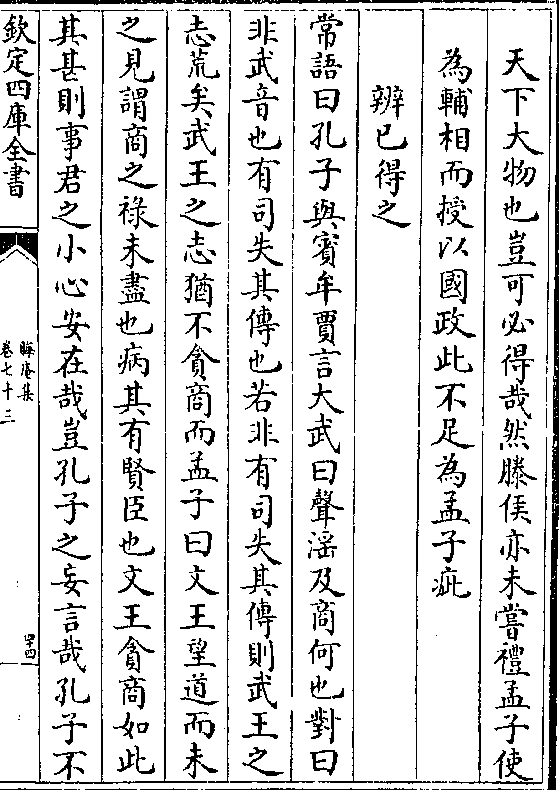 天下大物也豈可必得哉然滕侯亦未嘗禮孟子使
為輔相而授以國政此不足為孟子疵
辨已得之
常語曰孔子與賓牟賈言大武曰聲淫及商何也對曰
非武音也有司失其傳也若非有司失其傳則武王之
志荒矣武王之志猶不貪商而孟子曰文王望道而未
之見謂商之祿未盡也病其有賢臣也文王貪商如此
其甚則事君之小心安在哉豈孔子之妄言哉孔子不
欽定四庫全書
晦庵集
卷七十三
四四